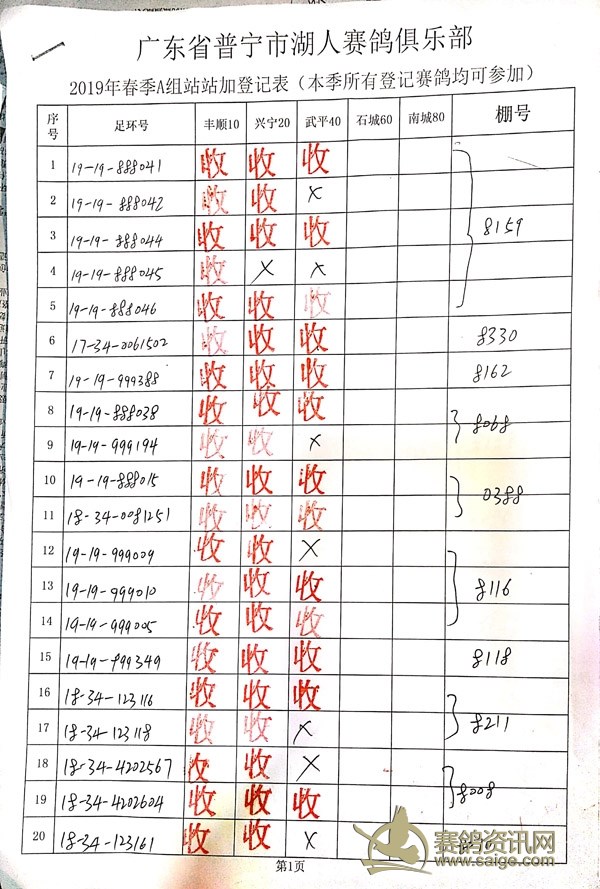 广东省普宁市湖人赛鸽俱乐部
2019年春季A组站站加登记表（本季所有登记赛鸽均可参加）
序号 足环号 丰顺10 兴宁20 武平40 石城60 南城80 棚号
1 19-19-888041 收 收 收
2 19-19-888042 收 收 ×
3 19-19-888044 收 收 收 8159
4 19-19-888045 收 × ×
5 19-19-888046 收 收 收
6 17-34-0061502 收 收 收 8330
7 19-19-999388 收 收 收 8162
8 19-19-888038 收 收 收 8068
9 19-19-999194 收 收 ×
10 19-19-888015 收 收 收 0388
11 18-34-0081251 收 收 收
12 19-19-999009 收 收 ×
13 19-19-999010 收 收 收 8116
14 19-19-999005 收 收 收
15 19-19-999349 收 收 收 8118
16 18-34-123116 收 收 收 8211
17 18-34-123118 收 收 ×
18 18-34-4202567 收 收 × 8008
19 18-34-4202604 收 收 收
20 18-34-123161 收 收 ×
第1页
赛鸽资讯网
www.saige.com